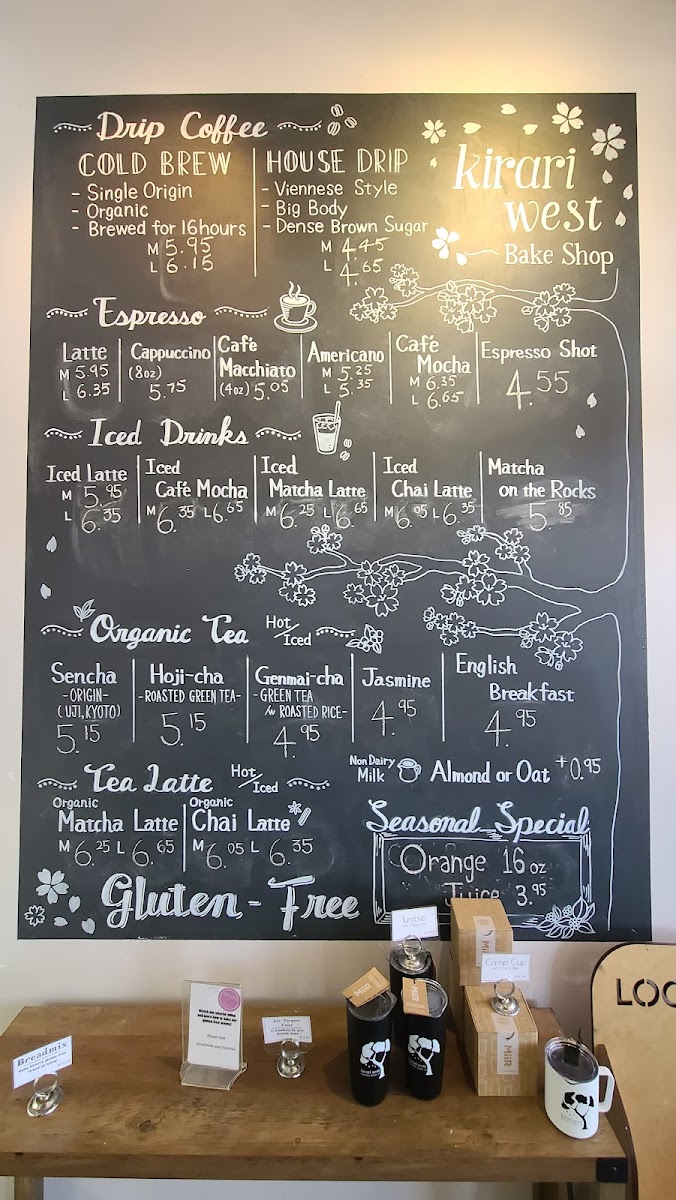 Drip Coffee
COLD BREW
- Single Origin
- Organic
- Brewed for 16hours
M 5.95
L 6.15
HOUSE DRIP
- Viennese Style
- Big Body
- Dense Brown Sugar
M 4.45
L 4.65
kirari
west
Bake Shop
Espresso
Latte
M 5.95
L 6.35
Cappuccino
(8oz)
5.75
Café
Macchiato
(4oz) 5.05
Americano
M 5.25
L 5.35
Café
Mocha
M 6.35
L 6.65
Espresso Shot
4.55
Iced Drinks
Iced Latte
M 5.95
L 6.35
Iced
Café Mocha
M 6.35 L 6.65
Iced
Matcha Latte
M 6.25 L 6.65
Iced
Chai Latte
M 6.05 L 6.35
Matcha
on the Rocks
5.85
Organic Tea Hot/Iced
Sencha
-ORIGIN-
(UJI, KYOTO)
5.15
Hoji-cha
-ROASTED GREEN TEA-
5.15
Genmai-cha
-GREEN TEA
/w ROASTED RICE-
4.95
Jasmine
4.95
English
Breakfast
4.95
Non Dairy
Milk
Almond or Oat +0.95
Tea Latte Hot/Iced
Organic
Matcha Latte
M 6.25 L 6.65
Organic
Chai Latte
M 6.05 L 6.35
Seasonal Special
Orange 16oz
Juice 3.95
Gluten-Free
Tumbler
Camp Cup
MiiR
MiiR
MiiR
LOC
Breadmix